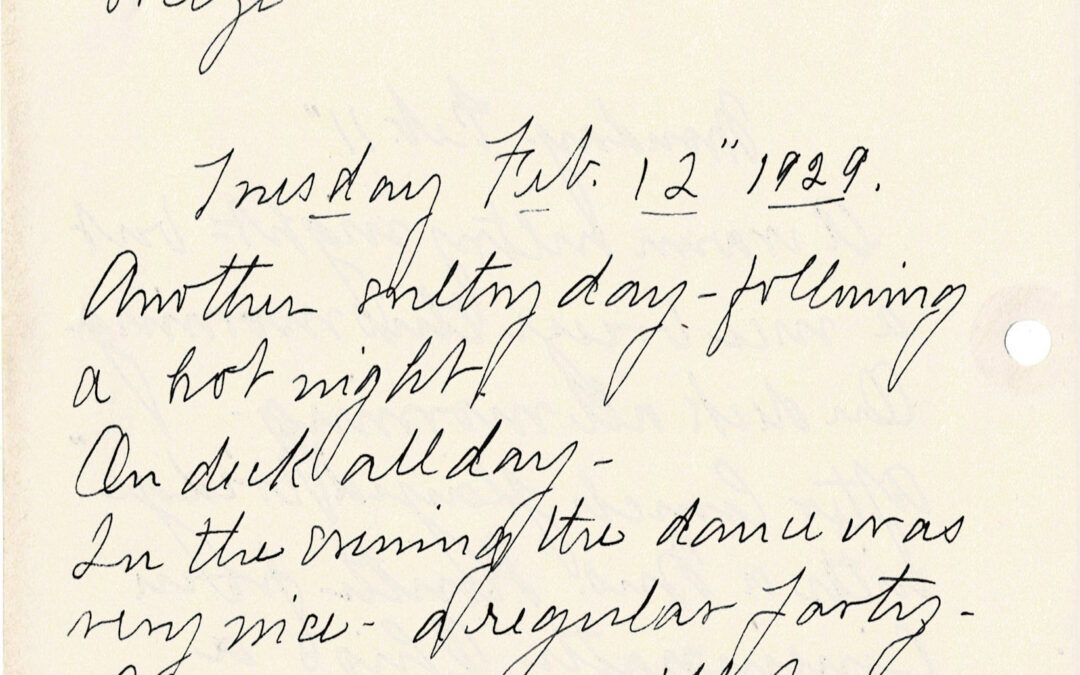 Tuesday Feb. 12" 1929.
Another sultry day - following
a hot night.
On deck all day -
In the evening the dance was
very nice - a regular party -